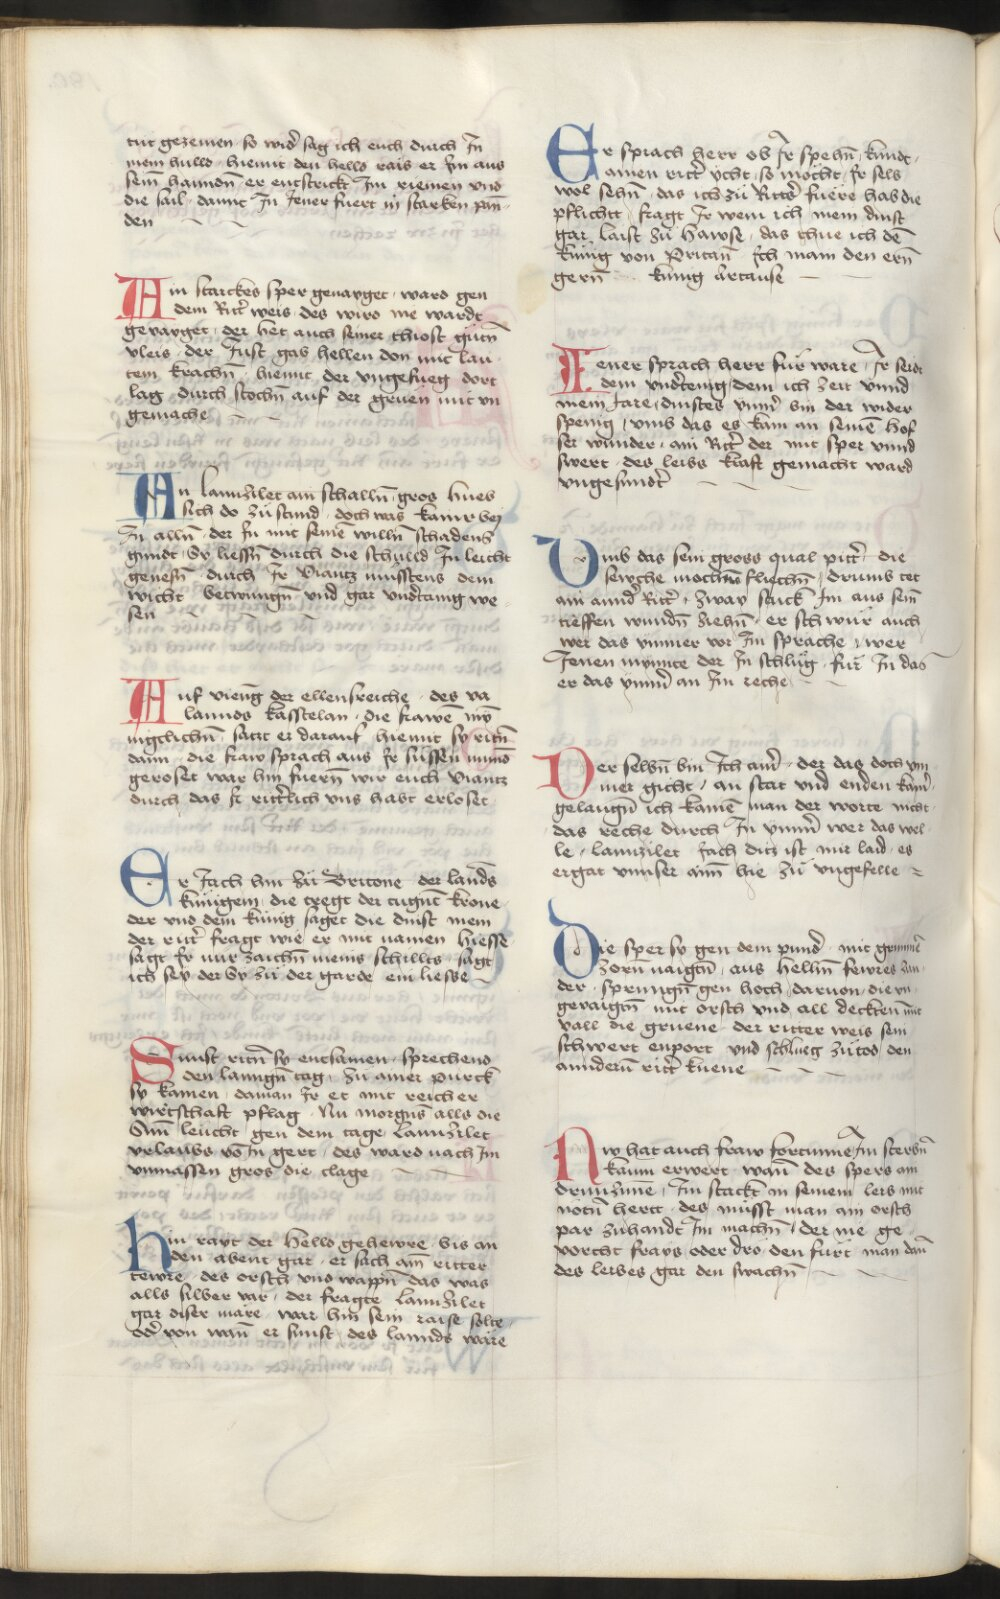 tut gezemen · so wid̉ sag ich euch durch Jn̄
mein huld · hiemit den helld rais er Jm aus
sein̄ hanndn̄ · er entstrickt Jm riemen vnd
die sail · damit Jn Jener fuert in starken pan ·
den
Ain starckes sper genayget · ward gen
dem Ritt̉ weis · des wird nie wardt
gezayget · der het auch seiner thiost gutn̄
vleis · der Just gab hellen don mit lau
tem krachn̄ · hiemit der vngefueg dort
lag · durch stochn̄ auf der gruen mit vn
gemache
An Lannzilet ain schalln̄ · gros hues
sich do zu stund · doch was kainr bey
Jn alln̄ · der Jn mit seinē willn̄ schadens
gundt · Sy liessn̄ durch die schulld Jn leicht
genesn̄ · durch Jr Viantz muesstens dem
wicht betwungn̄ vnd gar vndtanig we
sen
Auf vieng der ellensreiche · des va
lannds kasstelan · die frawē
mynnigclichn̄ · satzt er darauf hiemit sy ritn̄
dann · die fraw sprach aus Jr suessen mund
geroset war hin fuern̄ wir euch Viantz
durch das Jr rit̉lich vns habt erloset
Er Jach hin zu Britone der lannds
kunigein · die tregt der tugnt krone
der vnd dem kunig saget die dinst mein
der ritt̉ fragt wie er mit namen hiesse
sagt Jr nur zaichn̄ meins schillts · sagt
ich sey der Sy zu der garde ein liesse
Sunst ritn̄ sy entsamen · sprechend
den lanngn̄ tag · zu ainer purck
sy kamen · daman Jr et mit reicher
wirtschaft pflag · Nu morgns alls die
Sun̄ leucht gen dem tage · Lannzilet
vrlaubs vō Jn gert · des ward nach Jm
vnmassen gros die clage
Hin rayt der Helld gehewre bis an
den abent gar · er sach ain̄ ritter
tewre · des orsch vnd wappn̄ das was
alls silber var · der fragte Lannzilet
gar diser märe · war hin sein raise sollte
od̉ von wan̄ er sunst · des lannds wäre
Er sprach herr ob Jr spehn̄ · kundt ·
ainen ritt̉ ycht · so möcht · Jr sels
wol sehn̄ · das ich zu Ritt̉s fuere hab die
pflichtt · fragt Jr wem ich mein dinst
gar laist zu hawse · das thue ich dē
kunig von Britan̄ · Jch main den ern̄
gern̄ · kunig Artause
Jener sprach herr fur ware · Jr seit
dem vndtenig dem ich zeit vnnd
mein Jare · dinstes ymm̉ bin der wider
spenig · vmb das es kam an seinē hof
ser wunder · ain Ritt̉ der mit sper vnnd
swert · des leibs kraft gemacht ward
vngesundt̉
Vmb das sein gross qual pitt̉ · die
sewche mochtns fliechn̄ · drumb tet
ain annd̉ Ritt̉ · zway stuck Jm aus sein̄
tieffen wundn̄ ziehn̄ · er schwur auch
wer das ymmer vor Jm sprache · wer
Jenen mynnte der Jn schlug · fur Jn das
er das ymm̉ an Jm reche
Der selbn̄ bin Jch ain̉ · der das doch ym
mer gicht · an stat vnd enden kain̉ ·
gelaugn̄ ich kainē man der worte nicht ·
das reche durch Jn ymm̉ wer das wel
le · Lannzilet Jach ditz ist mir laid · es
ergat vnnser ain̄ hie zu vngefelle
Die sper sy gen dem pund · mit grymmē
zorn naigtn̄ · aus helln̄ fewres zun
der · sprungn̄ gen hoch · daruon die vn
gevaigtn̄ mit orsch vnd all decktten mit
vall die gruene · der ritter weis sein
schwert enport vnd schlueg zutod den
anndern̄ ritt̉ kuene
Nw hat auch fraw fortunne Jm sterbn̄
kaum erwert · wan̄ des spers ain
drumzunne · Jm stackt in seinem leib mit
notn̄ hertt · des muesst man ain orsch
par zuhandt Jm machn̄ · der nie ge
vorcht frays oder dro · den furt man dan̄
des leibes gar den swachn̄